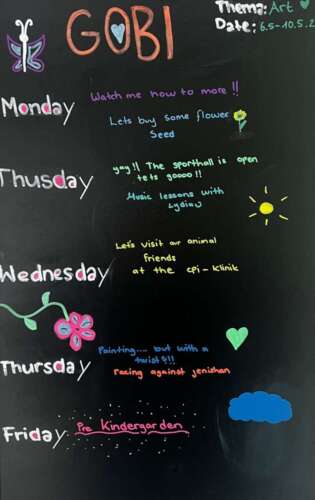 GOBI
Thema: Art
Date: 6.5-10.5.2
Monday
Watch me how to more !!
Lets buy some flower
Seed
Thusday
yay!! The sporthall is open
lets goooo!!
Music lessons with
Lydia
Wednesday
Let's visit our animal
friends
at the cpi-klinik
Thursday
Painting.... but with a
twist!!!
racing against jenishan
Friday
Pre Kindergarden